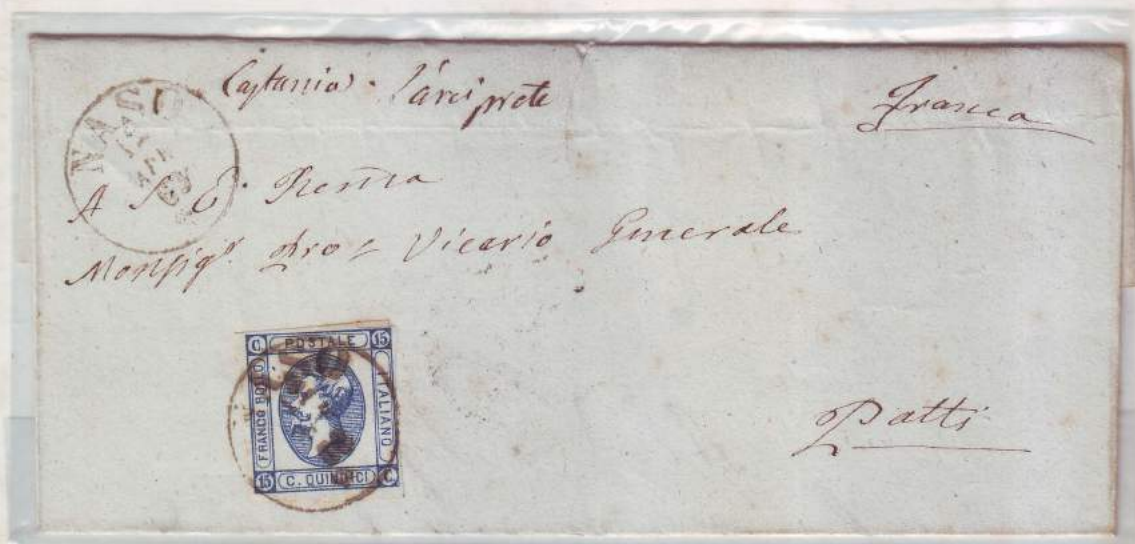 Castania. L'arciprete
Franca
NASO
A S. E. Revma
Monsigr. Pro = Vicario Generale
C POSTALE 15
FRANCO BOLLO
ITALIANO
15 C. QUINDICI C
Patti